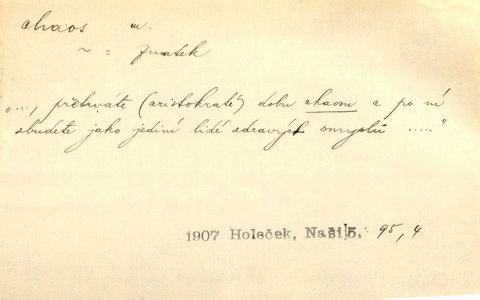 chaos m.
~ = zmatek
„..., přetrváte (aristokraté) dobu chaosu a po ní
zbudete jako jediní lidé zdravých smyslů ....."
1907 Holeček, Naši 5. 95, 4